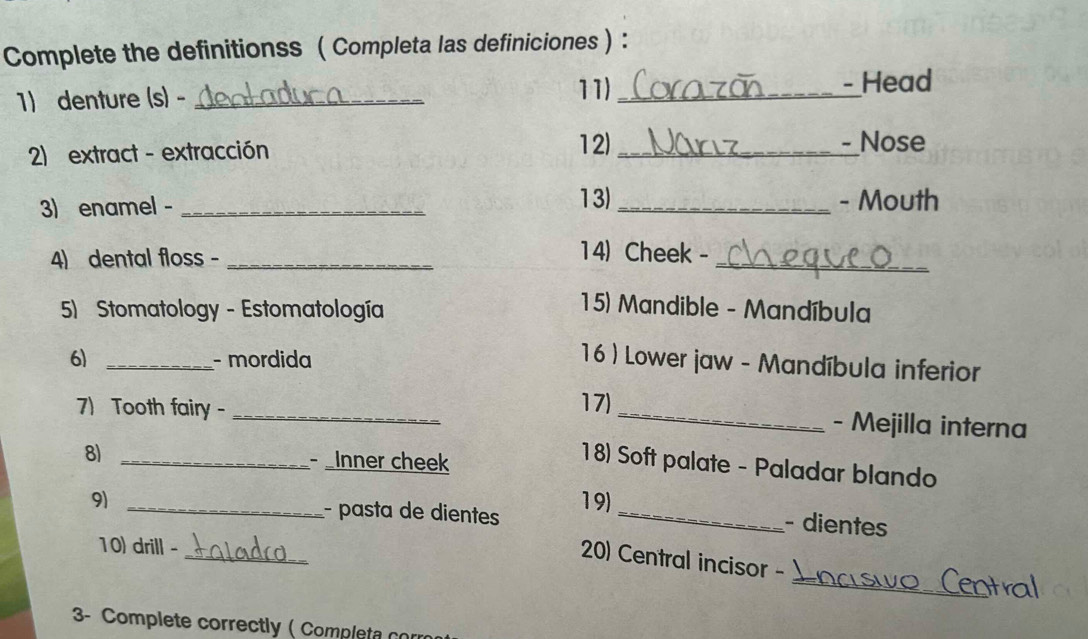 Complete the definitionss ( Completa las definiciones ) :
1) denture (s) - dentadura
2) extract - extracción
3) enamel - ____________
4) dental floss - ____________
5) Stomatology - Estomatología
6) ____________ - mordida
7) Tooth fairy - ____________
8) ____________ - Inner cheek
9) ____________ - pasta de dientes
10) drill - taladro
11) Corazōn - Head
12) Nariz - Nose
13) ____________ - Mouth
14) Cheek - chequeo
15) Mandible - Mandíbula
16 ) Lower jaw - Mandíbula inferior
17) ____________ - Mejilla interna
18) Soft palate - Paladar blando
19) ____________ - dientes
20) Central incisor - Incisivo Central
3- Complete correctly ( Completa